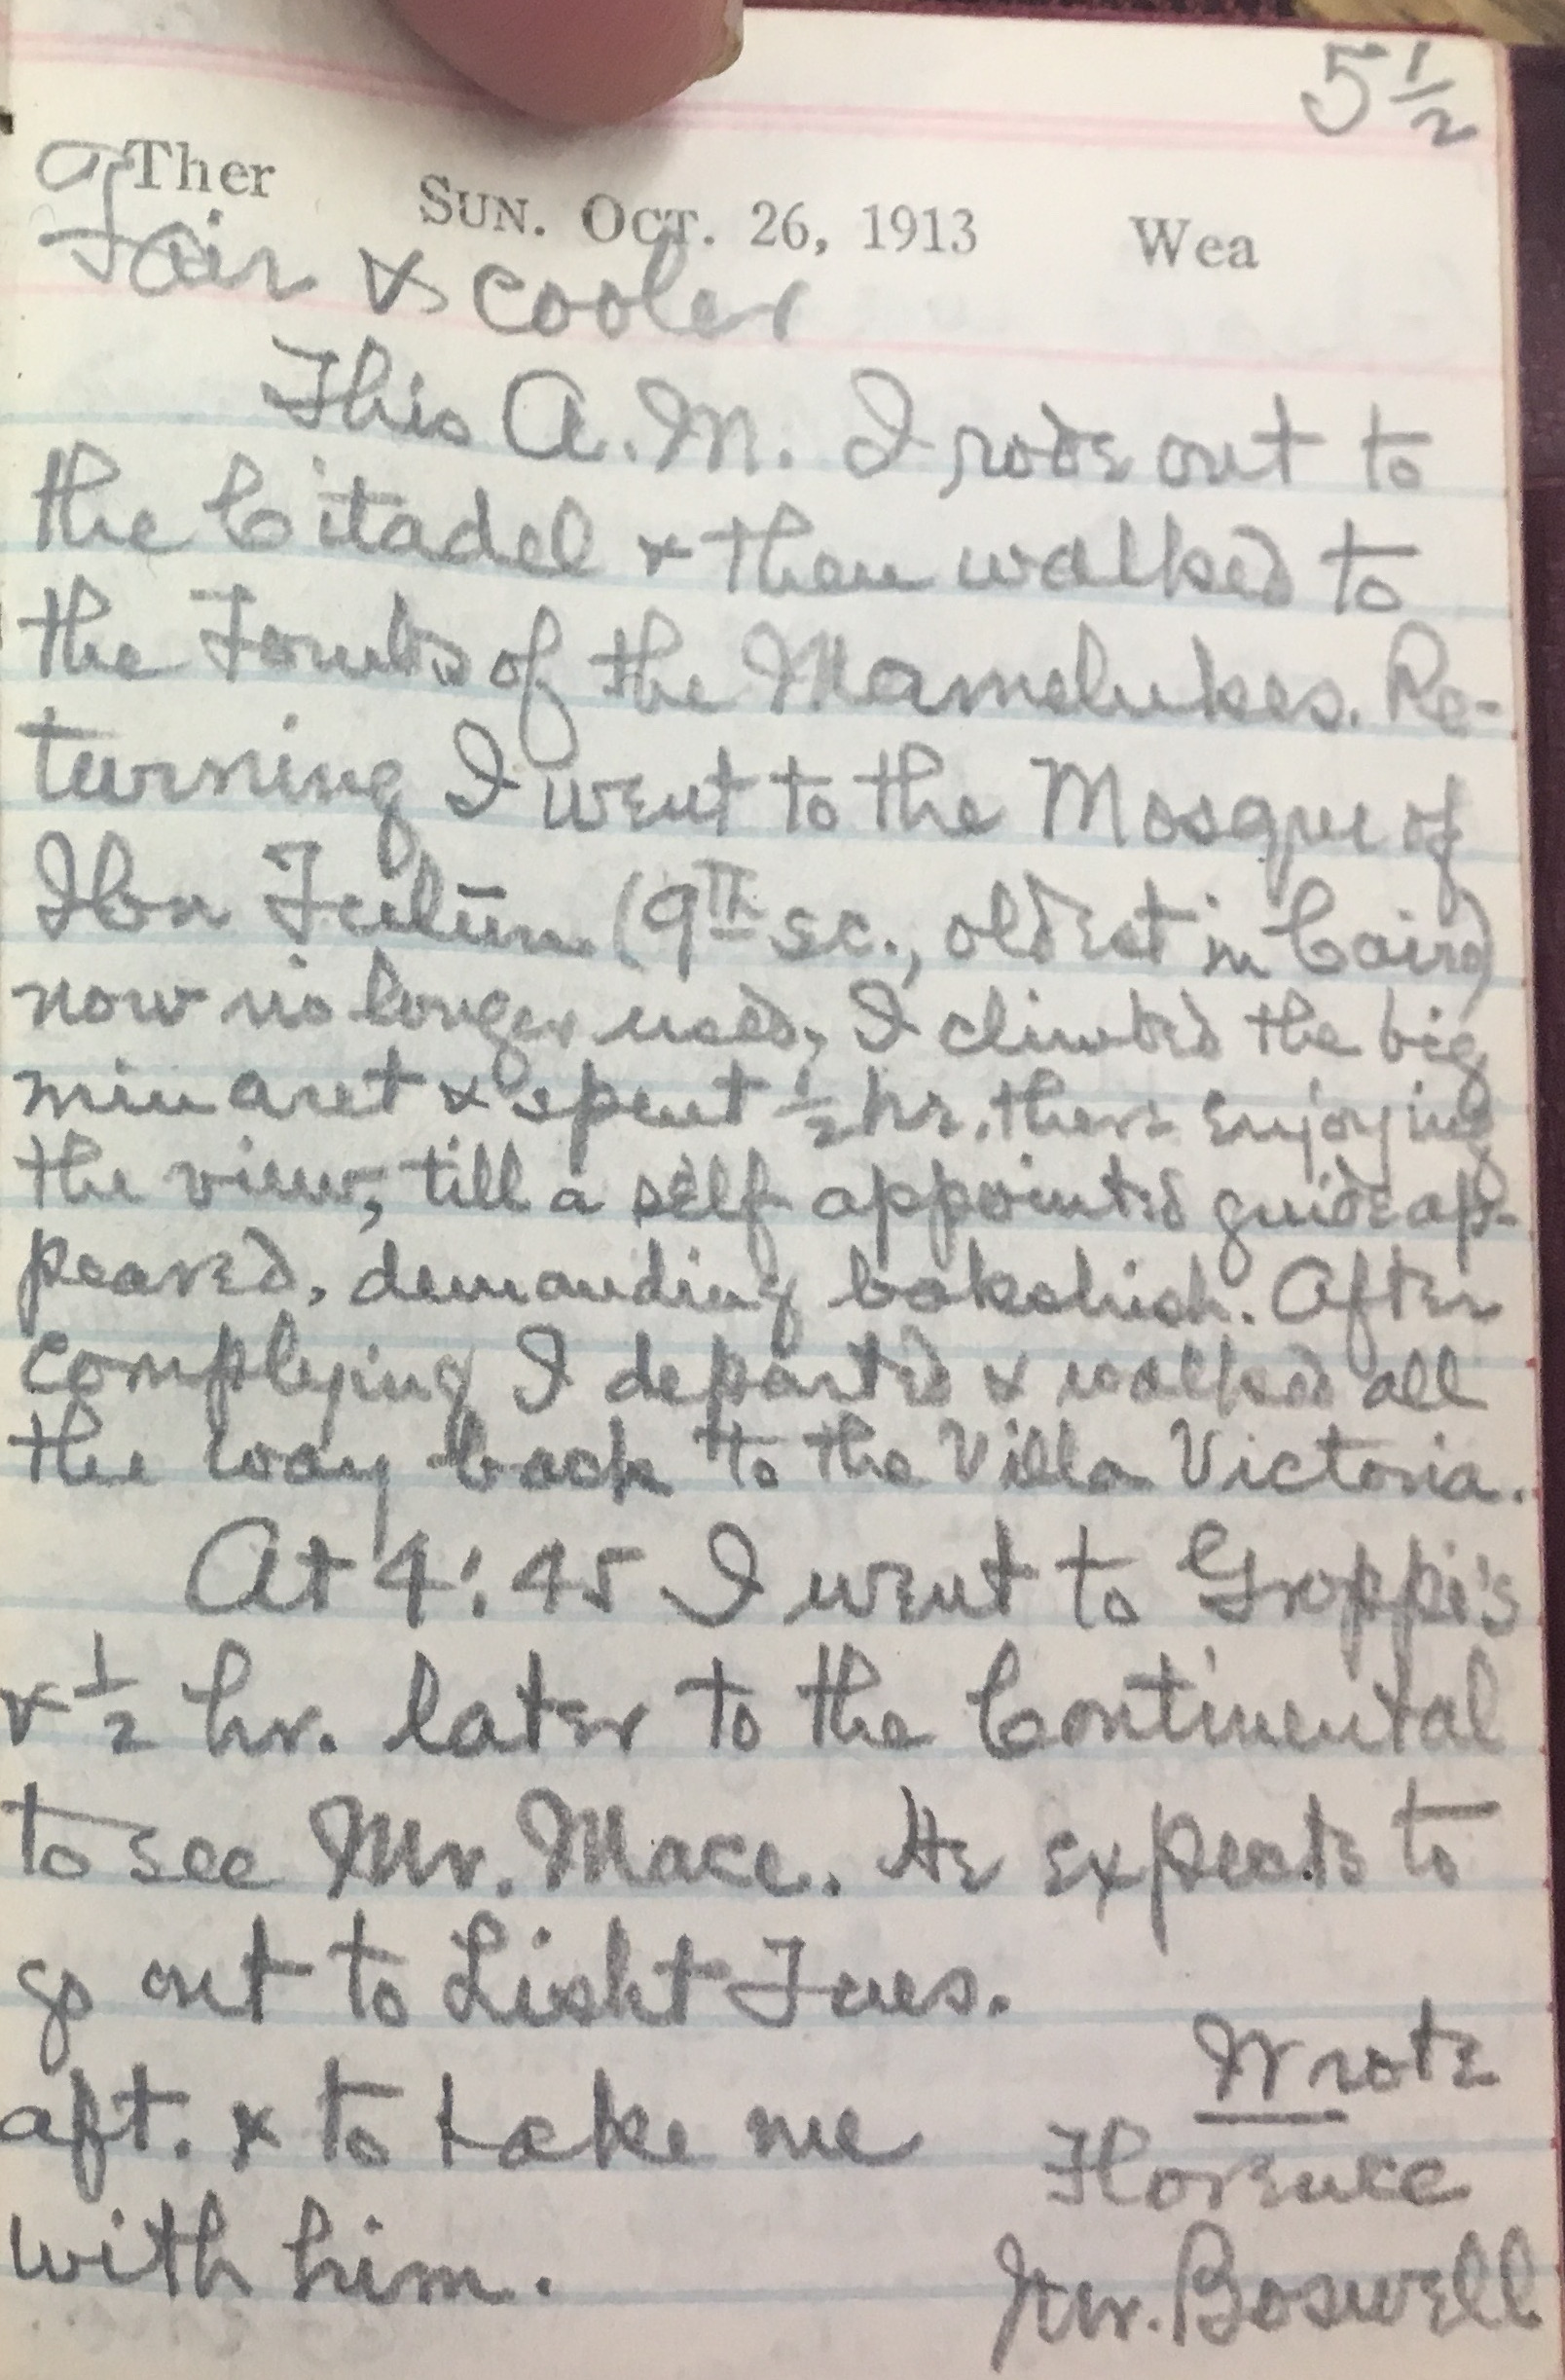 5 1/2
Ther SUN. OCT. 26, 1913 Wea
Fair & cooler
This A.M. I rode out to
the Citadel & then walked to
the Tombs of the Mamelukes. Re-
turning I went to the Mosque of
Ibn Tulūn (9th sc., oldest in Cairo)
now no longer used, I climbed the big
minaret & spent 1/2 hr. there enjoying
the view, till a self appointed guide ap-
peared, demanding bakshish. After
complying I departed & walked all
the way back to the Villa Victoria.
At 4:45 I went to Groppi's
& 1/2 hr. later to the Continental
to see Mr. Mace. He expects to
go out to Lisht Tues.
aft. & to take me
with him.
Wrote
Florence
Mr. Boswell